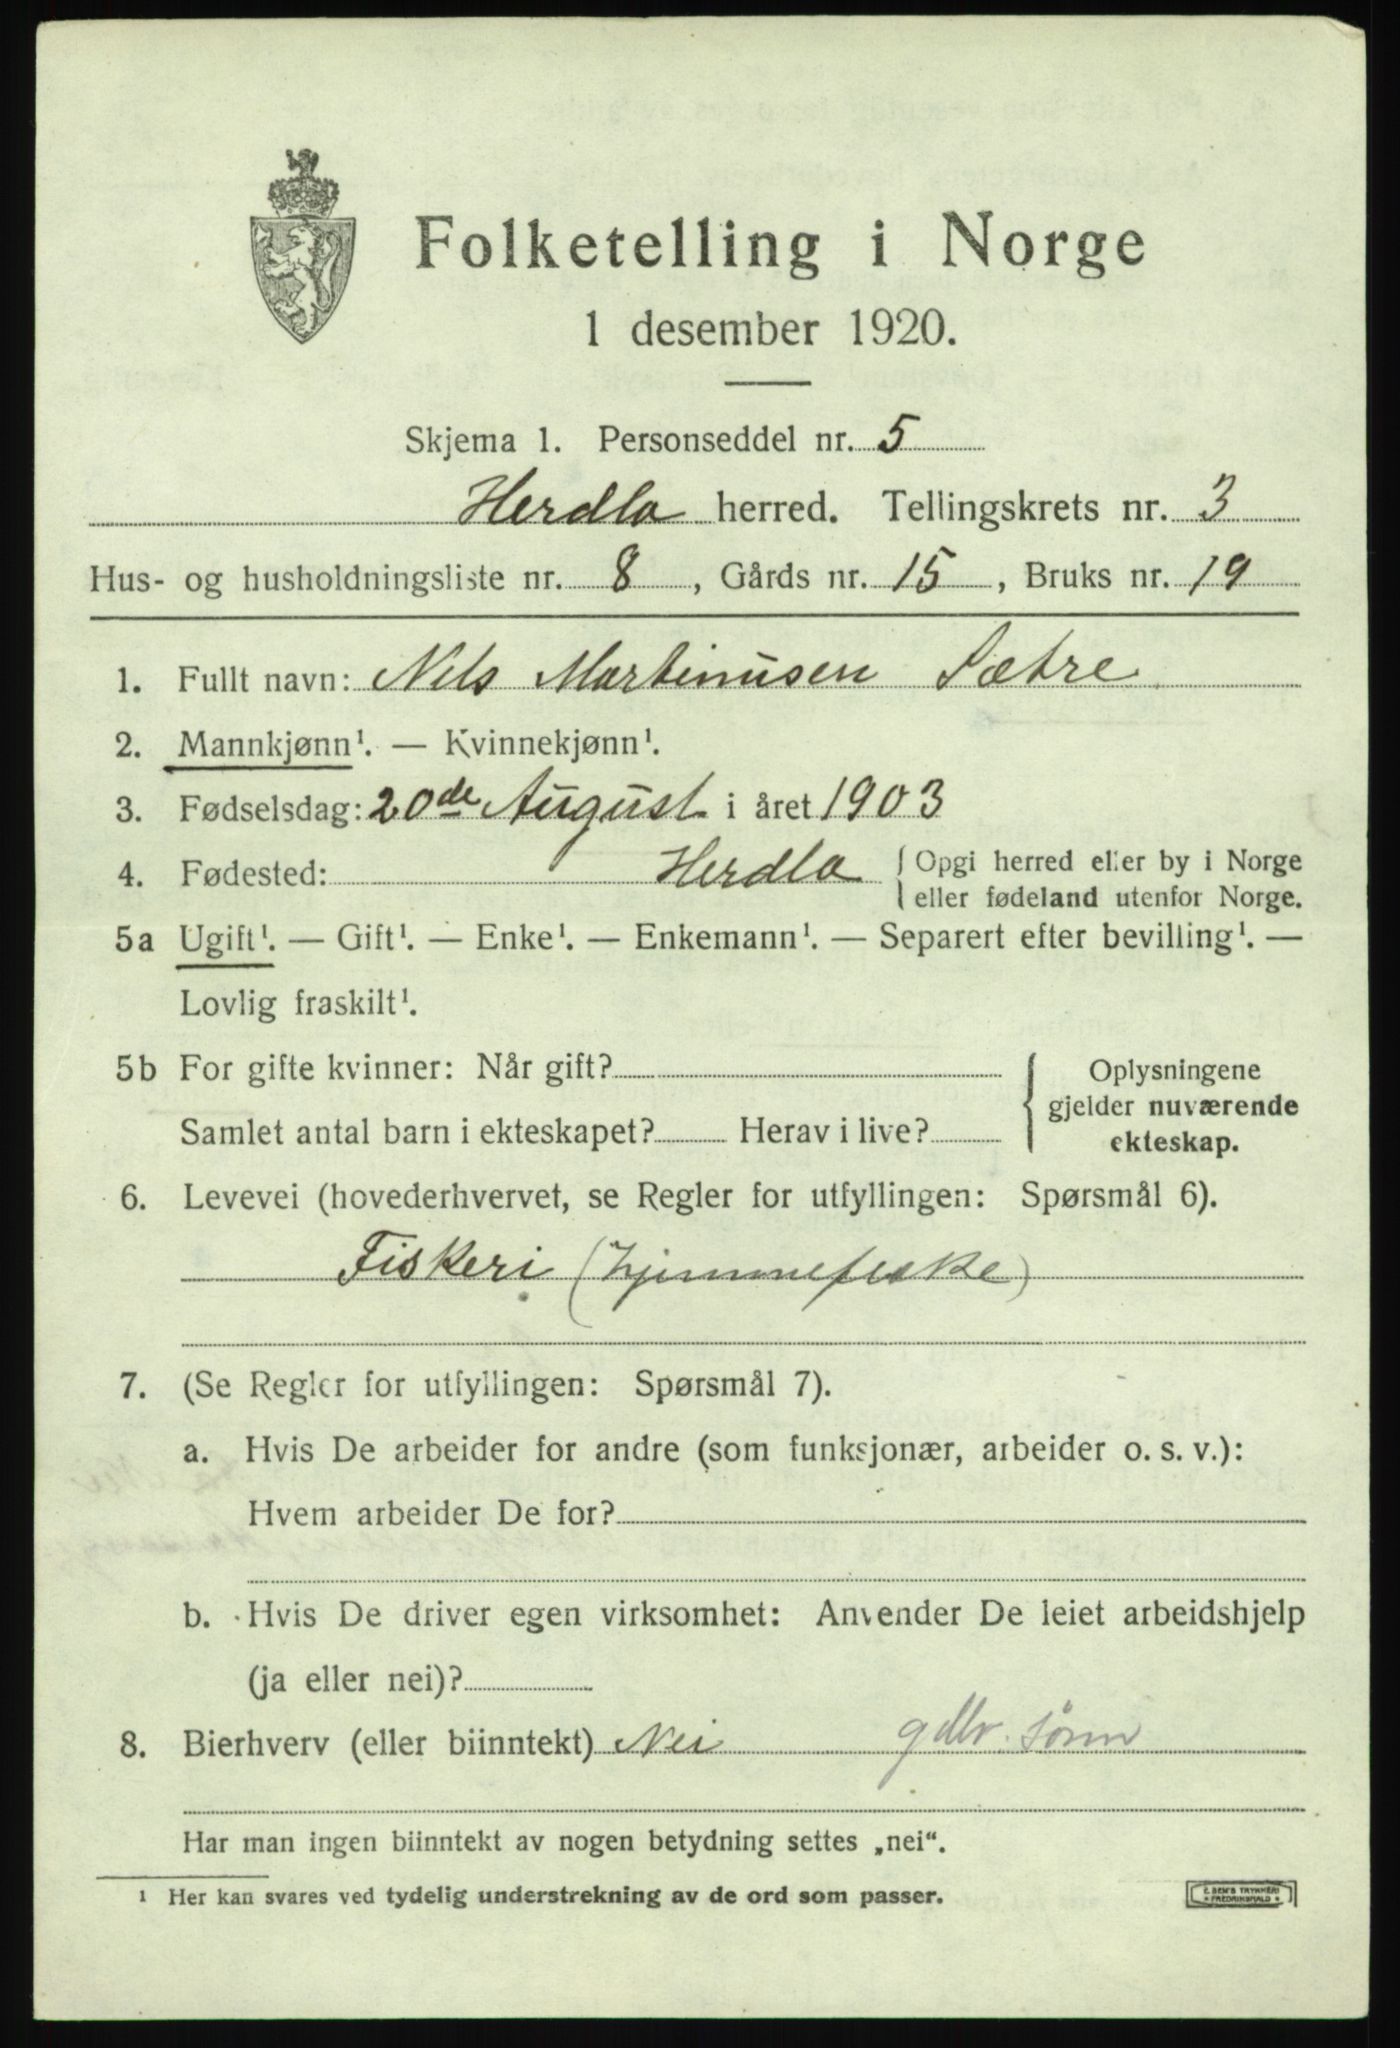 Folketelling i Norge
1 desember 1920.
Skjema 1. Personseddel nr. 5
Herdla herred. Tellingskrets nr. 3
Hus- og husholdningsliste nr. 8, Gårds nr. 15, Bruks nr. 19
1. Fullt navn: Nils Martinusen Sætre
2. Mannkjønn¹. — Kvinnekjønn¹.
3. Fødselsdag: 20de August i året 1903
4. Fødested: Herdla { Opgi herred eller by i Norge
eller fødeland utenfor Norge.
5a Ugift¹. — Gift¹. — Enke¹. — Enkemann¹. — Separert efter bevilling¹. —
Lovlig fraskilt¹.
5b For gifte kvinner: Når gift?
Samlet antal barn i ekteskapet? Herav i live?
{ Oplysningene
gjelder nuværende
ekteskap.
6. Levevei (hovederhvervet, se Regler for utfyllingen: Spørsmål 6).
Fiskeri (hjemmefiske)
7. (Se Regler for utfyllingen: Spørsmål 7).
a. Hvis De arbeider for andre (som funksjonær, arbeider o. s. v.):
Hvem arbeider De for?
b. Hvis De driver egen virksomhet: Anvender De leiet arbeidshjelp
(ja eller nei)?
8. Bierhverv (eller biinntekt) Nei sønn
Har man ingen biinntekt av nogen betydning settes „nei“.
¹ Her kan svares ved tydelig understrekning av de ord som passer.
E. SEM'S TRYKKERI
FREDRIKSHALD